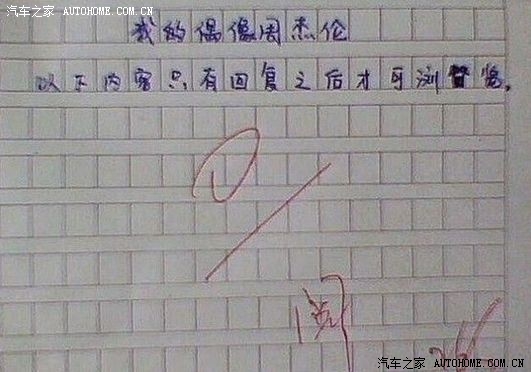 汽车之家 AUTOHOME.COM.CN
我的偶像周杰伦
以下内容只有回复之后才可浏览。
阅
汽车之家 AUTOHOME.COM.CN